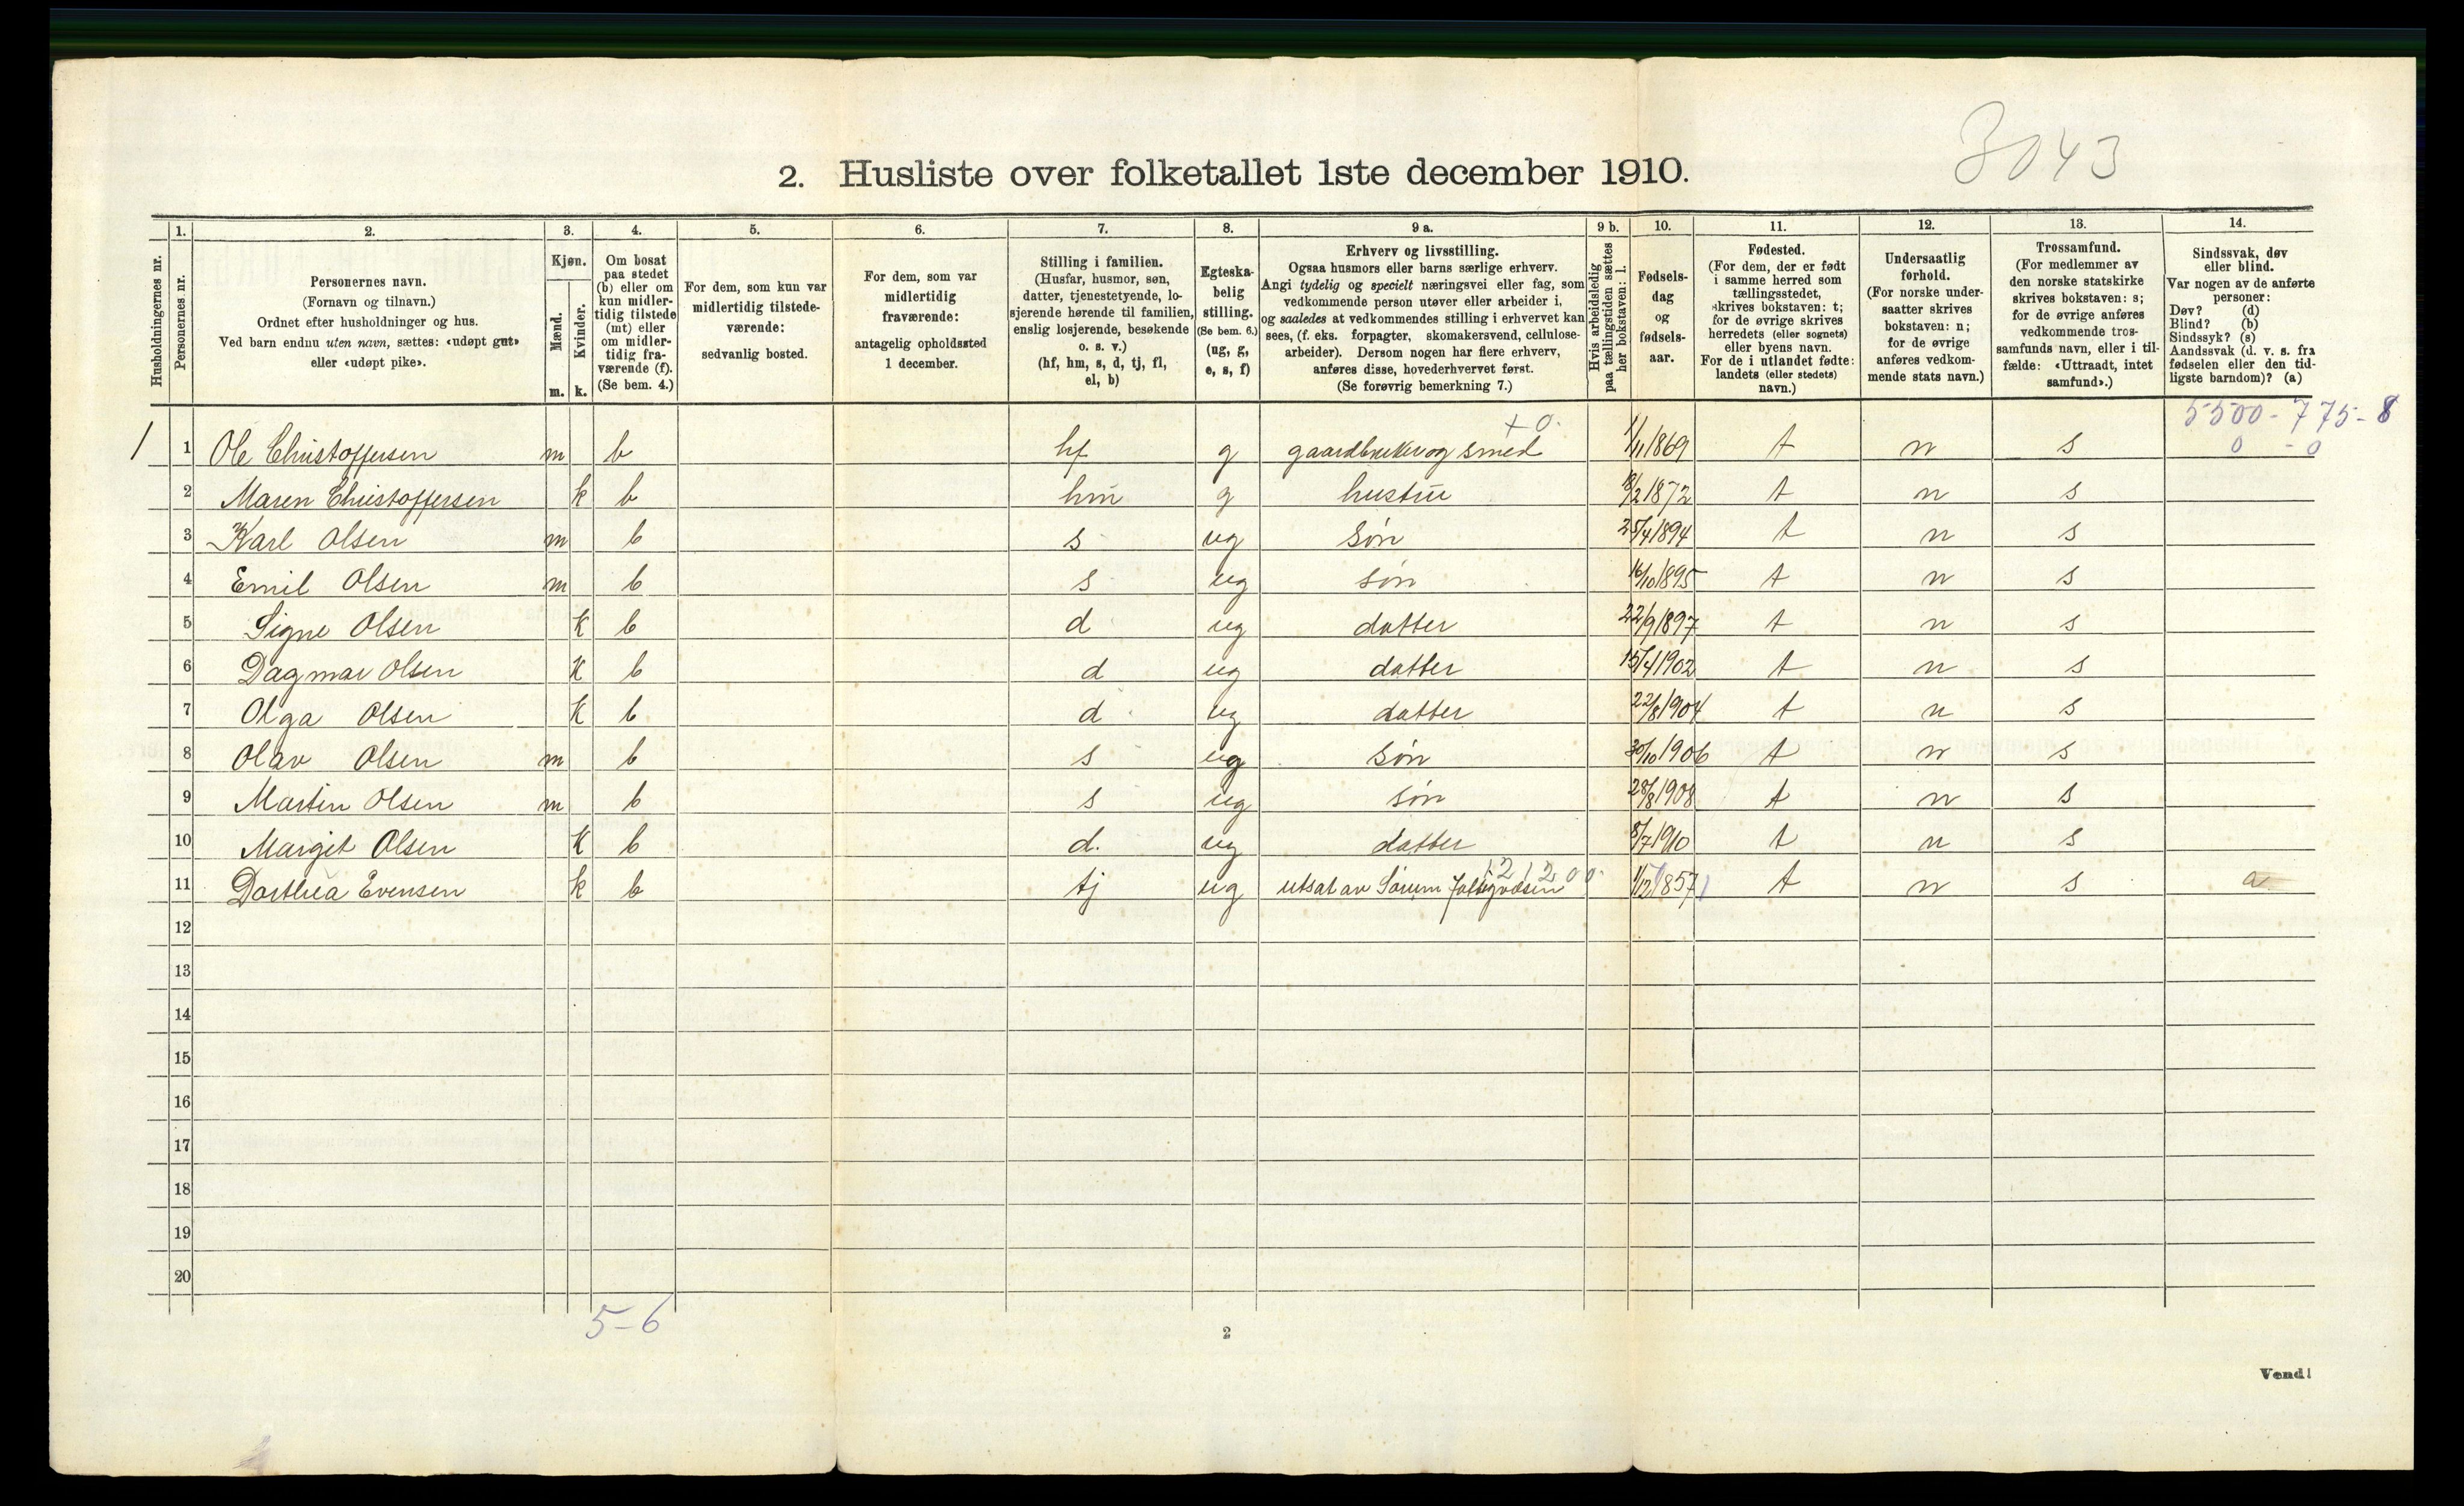 3043
2. Husliste over folketallet 1ste december 1910.
Husholdningernes nr.
1.
Personernes nr.
2.
Personernes navn.
(Fornavn og tilnavn.)
Ordnet efter husholdninger og hus.
Ved barn endnu uten navn, sættes: «udøpt gut»
eller «udøpt pike».
3.
Kjøn.
Mænd.
Kvinder.
m. k.
4.
Om bosat
paa stedet
(b) eller om
kun midler-
tidig tilstede
(mt) eller
om midler-
tidig fra-
værende (f).
(Se bem. 4.)
5.
For dem, som kun var
midlertidig tilstede-
værende:
sedvanlig bosted.
6.
For dem, som var
midlertidig
fraværende:
antagelig opholdssted
1 december.
7.
Stilling i familien.
(Husfar, husmor, søn,
datter, tjenestetyende, lo-
sjerende hørende til familien,
enslig losjerende, besøkende
o. s. v.)
(hf, hm, s, d, tj, fl,
el, b)
8.
Egteska-
belig
stilling.
(Se bem. 6.)
(ug, g,
e, s, f)
9 a.
Erhverv og livsstilling.
Ogsaa husmors eller barns særlige erhverv.
Angi tydelig og specielt næringsvei eller fag, som
vedkommende person utøver eller arbeider i,
og saaledes at vedkommendes stilling i erhvervet kan
sees, (f. eks. forpagter, skomakersvend, cellulose-
arbeider). Dersom nogen har flere erhverv,
anføres disse, hovederhvervet først.
(Se forøvrig bemerkning 7.)
9 b.
Hvis arbeidsledig
paa tællingstiden sættes
her bokstaven: l.
10.
Fødsels-
dag
og
fødsels-
aar.
11.
Fødested.
(For dem, der er født
i samme herred som
tællingsstedet,
skrives bokstaven: t;
for de øvrige skrives
herredets (eller sognets)
eller byens navn.
For de i utlandet fødte:
landets (eller stedets)
navn.)
12.
Undersaatlig
forhold.
(For norske under-
saatter skrives
bokstaven: n;
for de øvrige
anføres vedkom-
mende stats navn.)
13.
Trossamfund.
(For medlemmer av
den norske statskirke
skrives bokstaven: s;
for de øvrige anføres
vedkommende tros-
samfunds navn, eller i til-
fælde: «Uttraadt, intet
samfund».)
14.
Sindssvak, døv
eller blind.
Var nogen av de anførte
personer:
Døv? (d)
Blind? (b)
Sindssyk? (s)
Aandssvak (d. v. s. fra
fødselen eller den tid-
ligste barndom)? (a)
+ 0. 5500-775-8
1 1 Ole Christoffersen m b hf g gaardbruker og smed 1/11 1869 t n s 0 - 0
2 Maren Christoffersen k b hm g hustru 18/2 1872 t n s
3 Karl Olsen m b s ug søn 25/4 1894 t n s
4 Emil Olsen m b s ug søn 16/10 1895 t n s
5 Signe Olsen k b d ug datter 22/9 1897 t n s
6 Dagmar Olsen k b d ug datter 15/4 1902 t n s
7 Olga Olsen k b d ug datter 22/8 1904 t n s
8 Olav Olsen m b s ug søn 30/10 1906 t n s
9 Martin Olsen m b s ug søn 28/8 1908 t n s
10 Margit Olsen k b d. ug datter 8/7 1910 t n s
11 Dorthea Evensen k b tj ug utsat av Sørum 1/12 1857 t n s a
12
13
14
15
16
17
18
19
20
5-6
2
Vend!